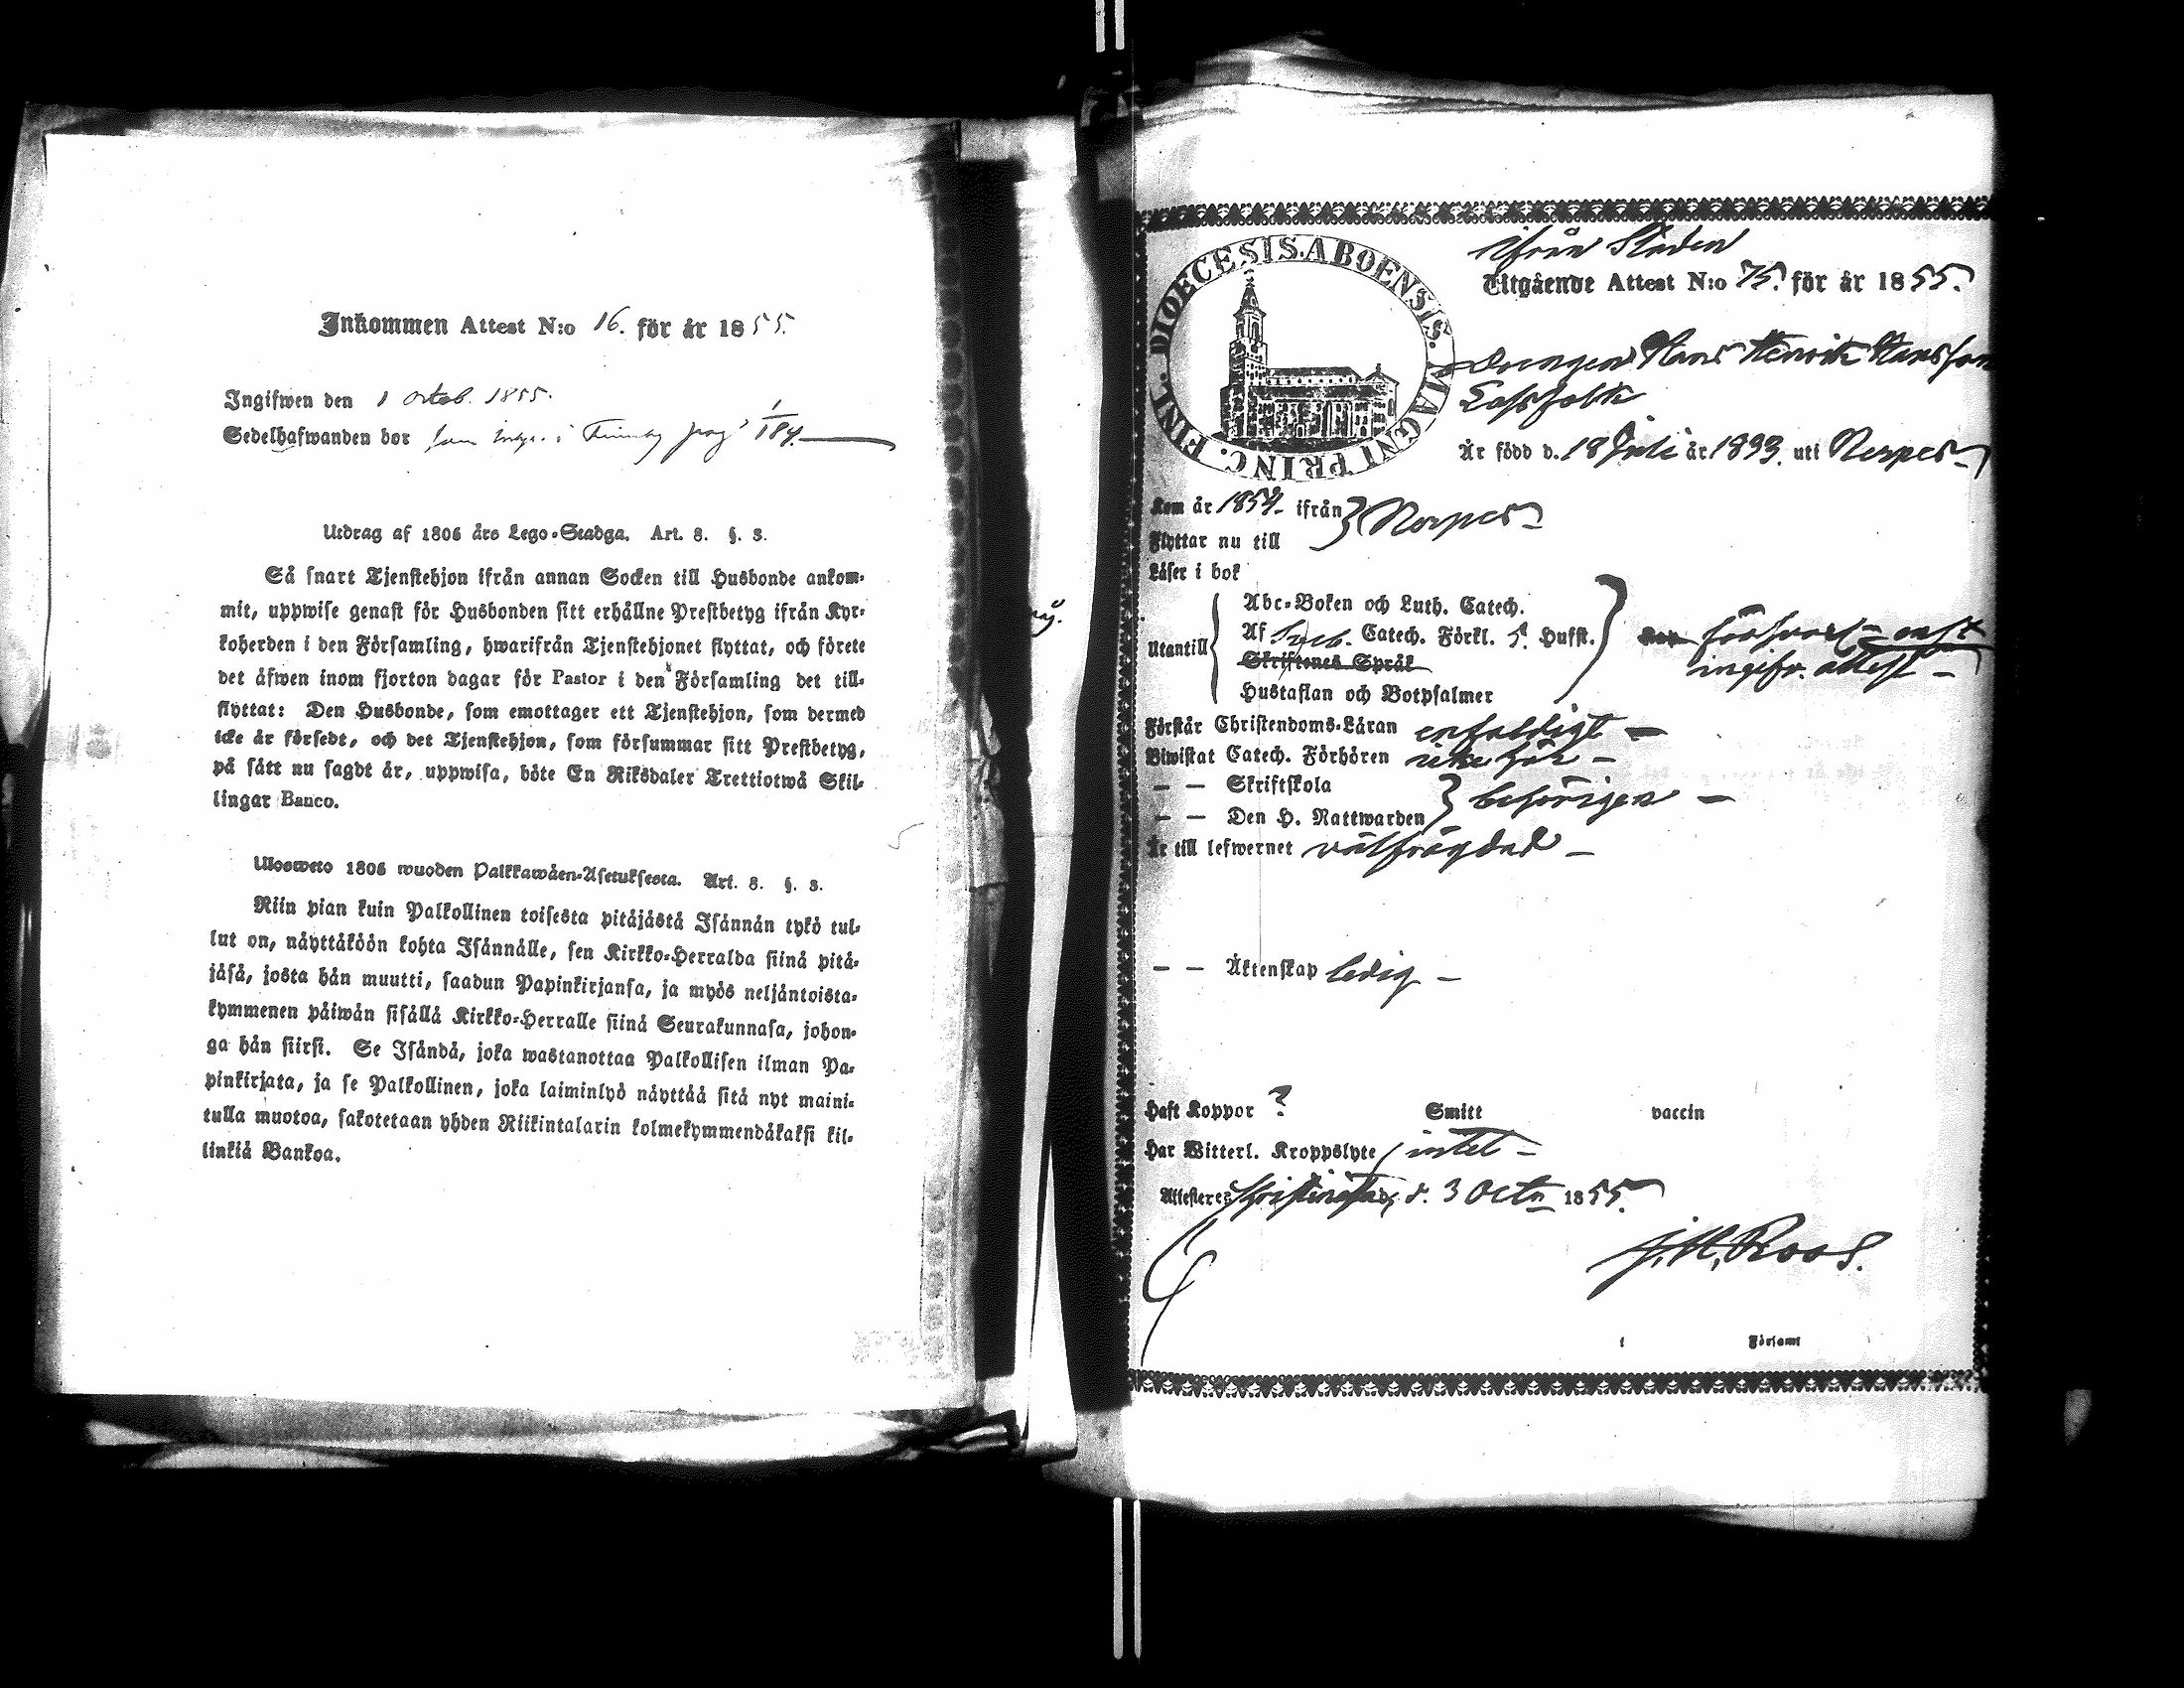 Inkommen Attest N:o 16. för år 1855.
Ingifwen den 1 octob. 1855.
Sedelhafwanden bor som inhys. i Finnby pag 184.
Utdrag af 1806 års Lego-Stadga. Art. 8. §. 3.
Så snart Tjenstehjon ifrån annan Socken till Husbonde ankom-
mit, uppwise genast för Husbonden sitt erhållne Prestbetyg ifrån Kyr-
koherden i den Församling, hwarifrån Tjenstehjonet flyttat, och förete
det äfwen inom fjorton dagar för Pastor i den Församling det till-
flyttat: Den Husbonde, som emottager ett Tjenstehjon, som dermed
icke är försedt, och det Tjenstehjon, som försummar sitt Prestbetyg,
på sätt nu sagdt är, uppwisa, böte En Riksdaler Trettiotwå Skil-
lingar Banco.
Ulosweto 1806 wuoden Palkkawäen-Asetuksesta. Art. 8. §. 3.
Niin pian kuin Palkollinen toisesta pitäjästä Isännän tykö tul-
lut on, näyttäköön kohta Isännälle, sen Kirkko-Herralda siinä pitä-
jäsä, josta hän muutti, saadun Papinkirjansa, ja myös neljäntoista-
kymmenen päiwän sisällä Kirkko-Herralle siinä Seurakunnasa, johon-
ga hän siirsi. Se Isändä, joka wastanottaa Palkollisen ilman Pa-
pinkirjata, ja se Palkollinen, joka laiminlyö näyttää sitä nyt maini-
tulla muotoa, sakotetaan yhden Riikintalarin kolmekymmendäkaksi kil-
linkiä Bankoa.
DIOECESIS. ABOENSIS. MAGNI PRINC. FINL.
Ifrån Staden
Utgående Attest N:o 75. för år 1855.
Drengen Hans Henrik Hansson
Lassfolk
Är född d. 18 Juli år 1833. uti Nerpes
Kom år 1854 ifrån } Nerpes
Flyttar nu till
Läser i bok
Utantill
Abc-Boken och Luth. Catech.
Af Sveb. Catech. Förkl. 5 Hufst.
Skriftenes Språk
Hustaflan och Botpsalmer
försvarl enl
ingifv. attest
Förstår Christendoms-Läran enfaldigt
Biwistat Catech. Förhören icke här
— — Skriftskola
— — Den H. Nattwarden } behörigen
Är till lefwernet välfrägdad
— — Äktenskap ledig
Haft Koppor ? Smitt vaccin
Har Witterl. Kroppslyte intet
Attesteres Christinestad, d. 3 Octr 1855.
J. H. Roos.
i Församl